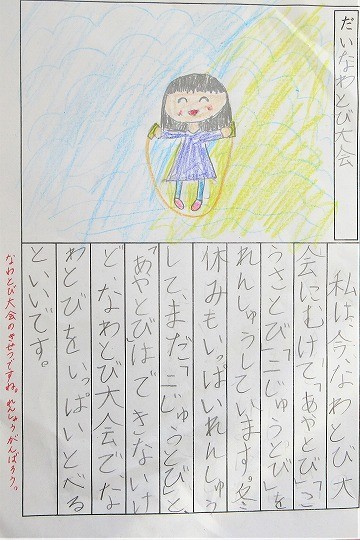 だいなわとび大会
私は、今、なわとび大
会にむけて、「あやとび」「こ
うさとび」「二じゅうとび」を
れんしゅうしています。冬
休みもいっぱいれんしゅう
して、まだ「二じゅうとび」と、
「あやとび」はできないけ
ど、なわとび大会でな
わとびをいっぱいとべる
といいです。
なわとび大会のきせつですね。れんしゅうがんばろう。